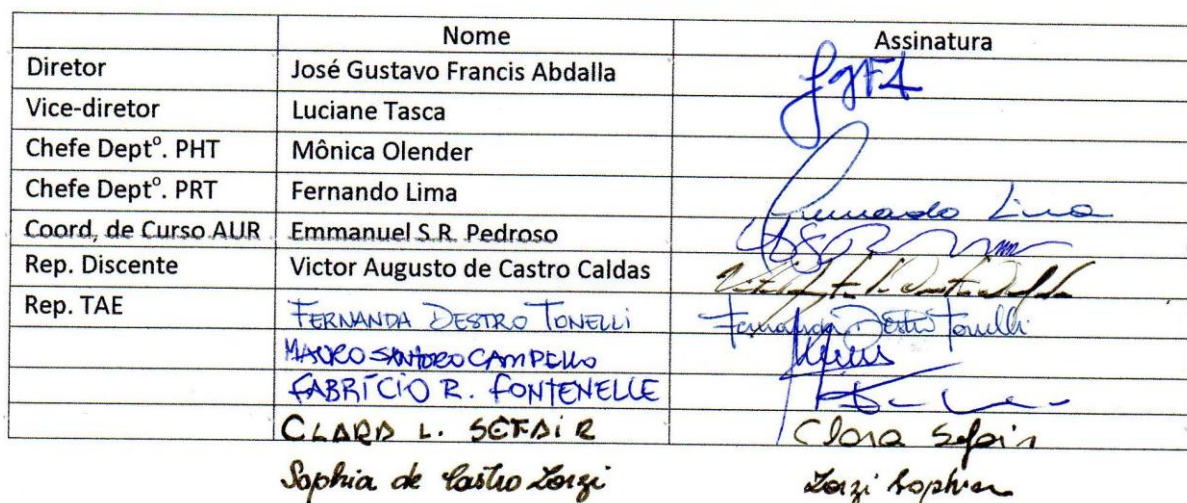 Nome Assinatura
Diretor José Gustavo Francis Abdalla JGFA
Vice-diretor Luciane Tasca
Chefe Deptº. PHT Mônica Olender
Chefe Deptº. PRT Fernando Lima Fernando Lima
Coord, de Curso AUR Emmanuel S.R. Pedroso
Rep. Discente Victor Augusto de Castro Caldas
Rep. TAE FERNANDA DESTRO TONELLI Fernanda Destro Tonelli
MAURO SANTORO CAMPELLO
FABRÍCIO R. FONTENELLE
CLARA L. SEFAIR Clara Sefair
Sophia de Castro Zorzi Zorzi Sophia